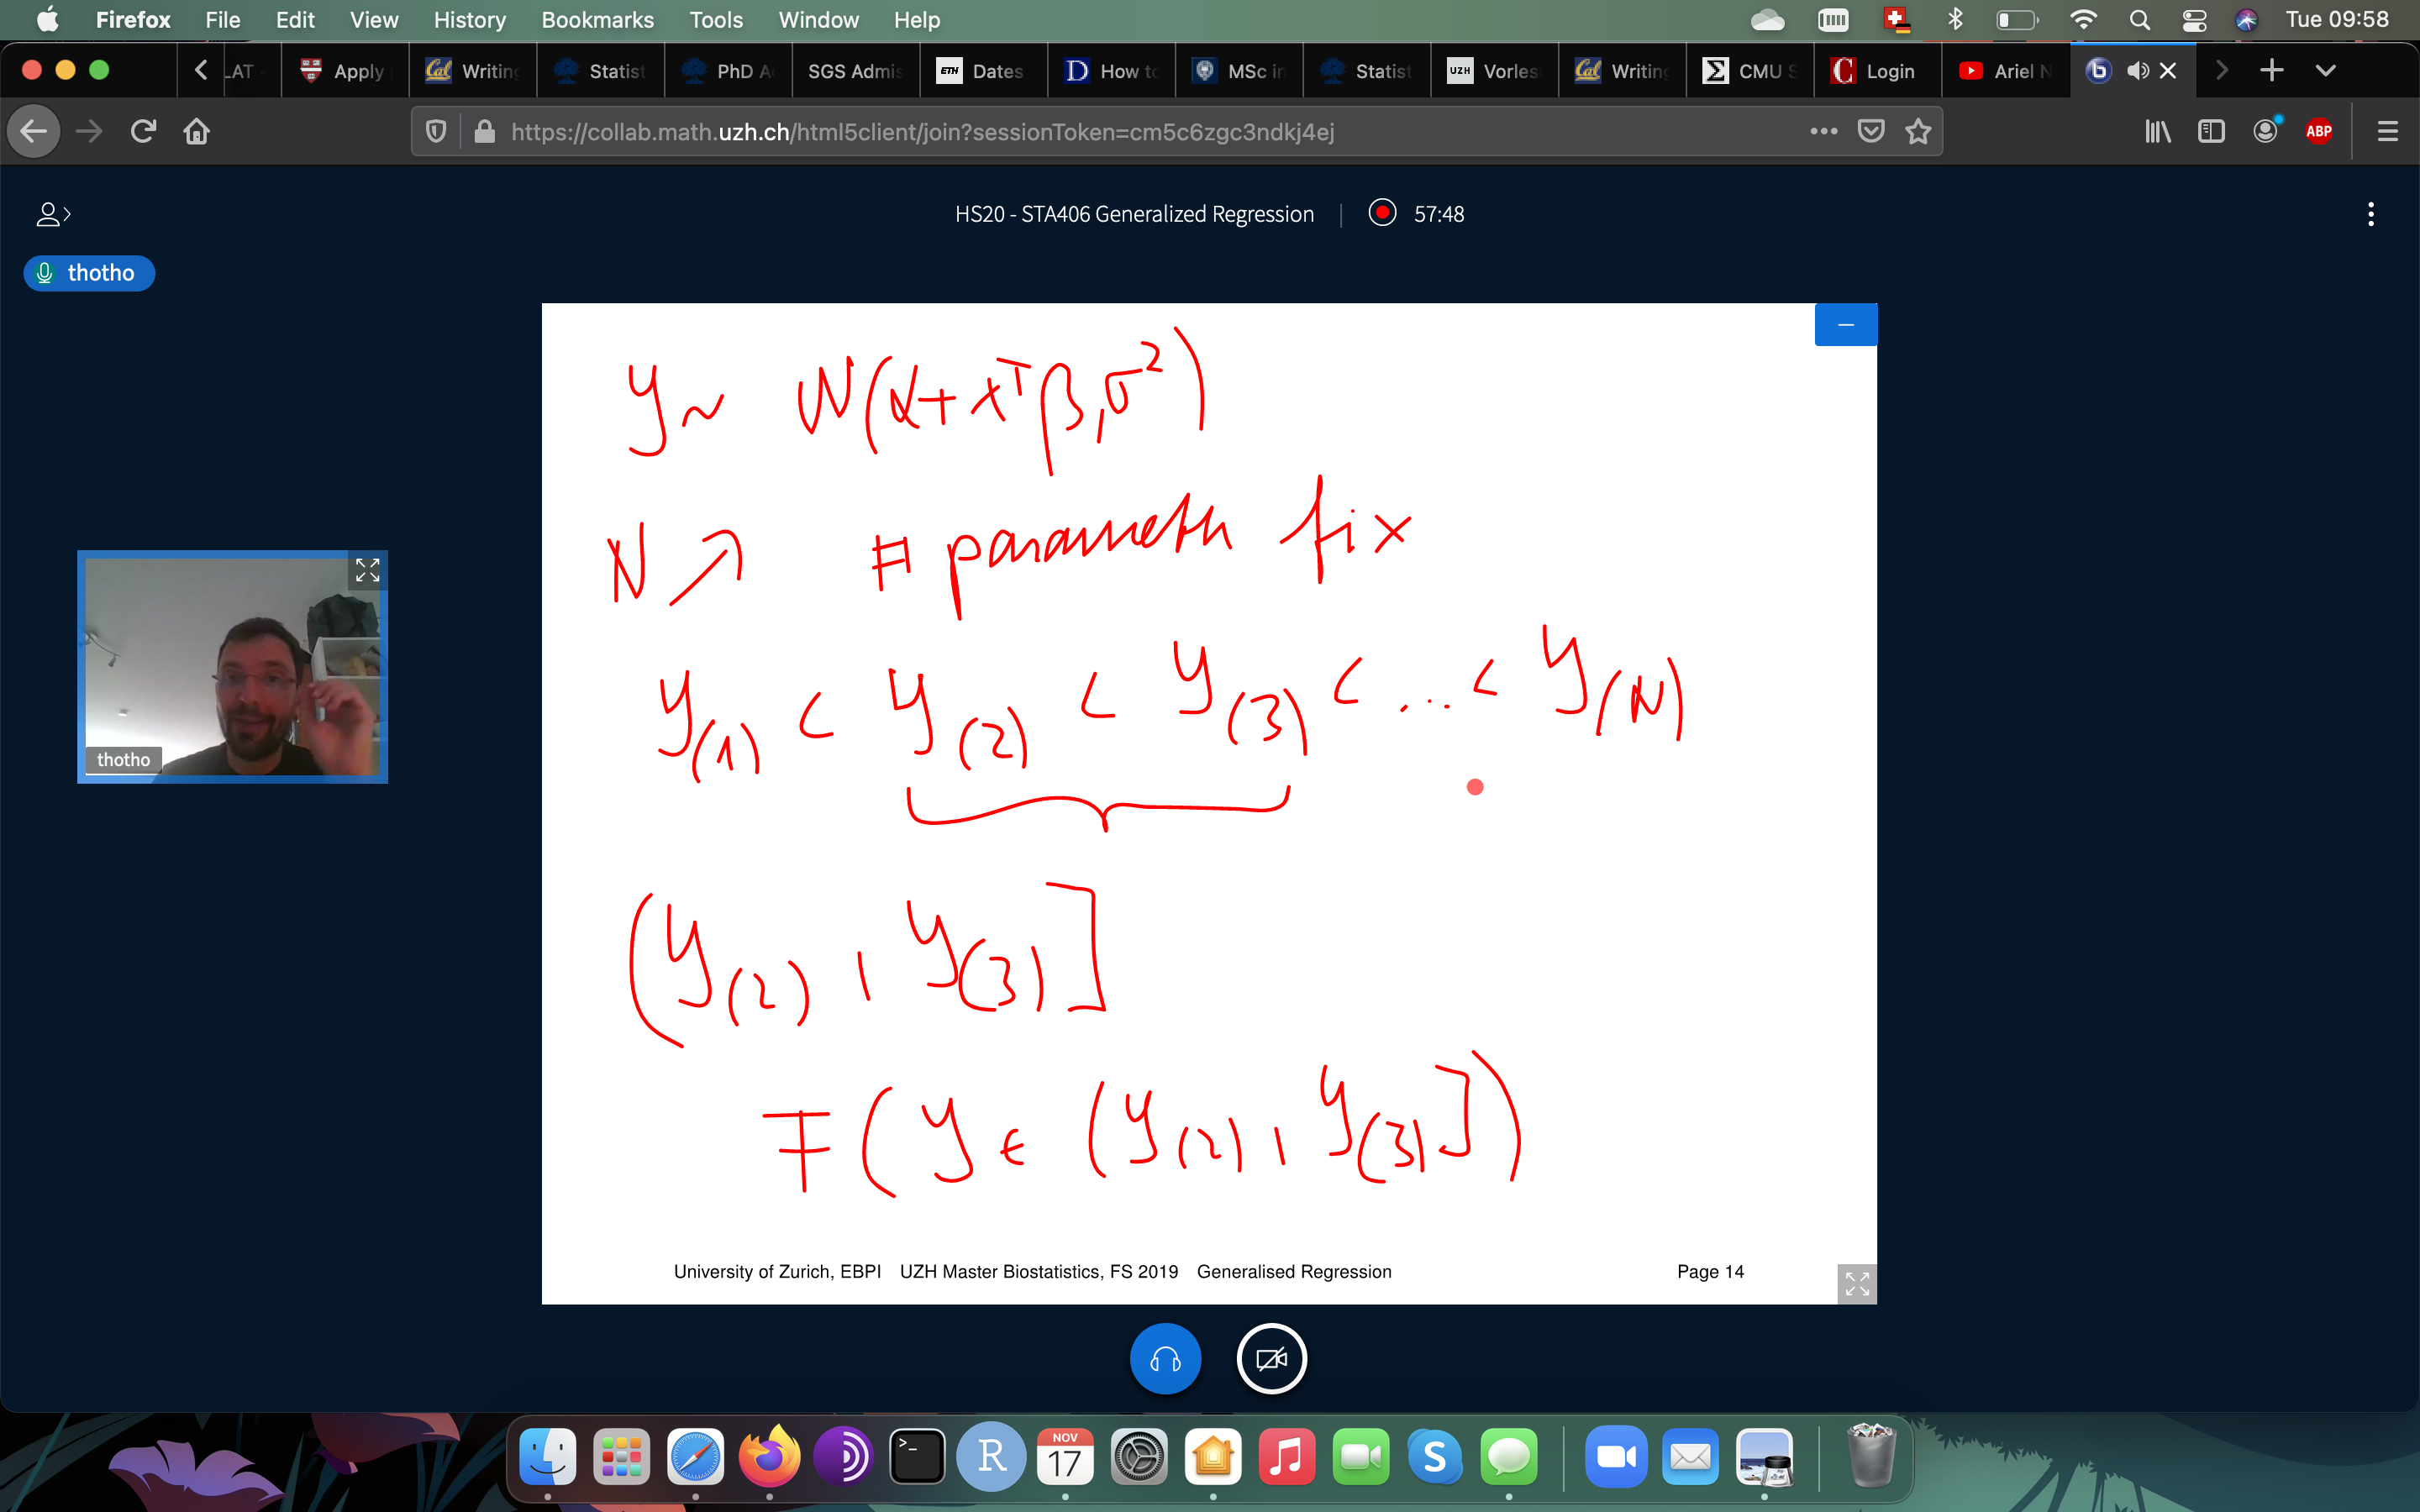 Firefox File Edit View History Bookmarks Tools Window Help Tue 09:58
LAT Apply Cal Writing Statist PhD A SGS Admis ETH Dates D How to MSc in Statist UZH Vorles Cal Writing Σ CMU S C Login Ariel N b
https://collab.math.uzh.ch/html5client/join?sessionToken=cm5c6zgc3ndkj4ej ABP
HS20 - STA406 Generalized Regression | 57:48
thotho
y ~ N(α + xᵀβ, σ²)
N ↗ # parameth fix
y₍₁₎ < y₍₂₎ < y₍₃₎ < ... < y₍N₎
thotho
(y₍₂₎, y₍₃₎]
F(y ∈ (y₍₂₎, y₍₃₎])
University of Zurich, EBPI UZH Master Biostatistics, FS 2019 Generalised Regression Page 14
>_ R NOV 17 S